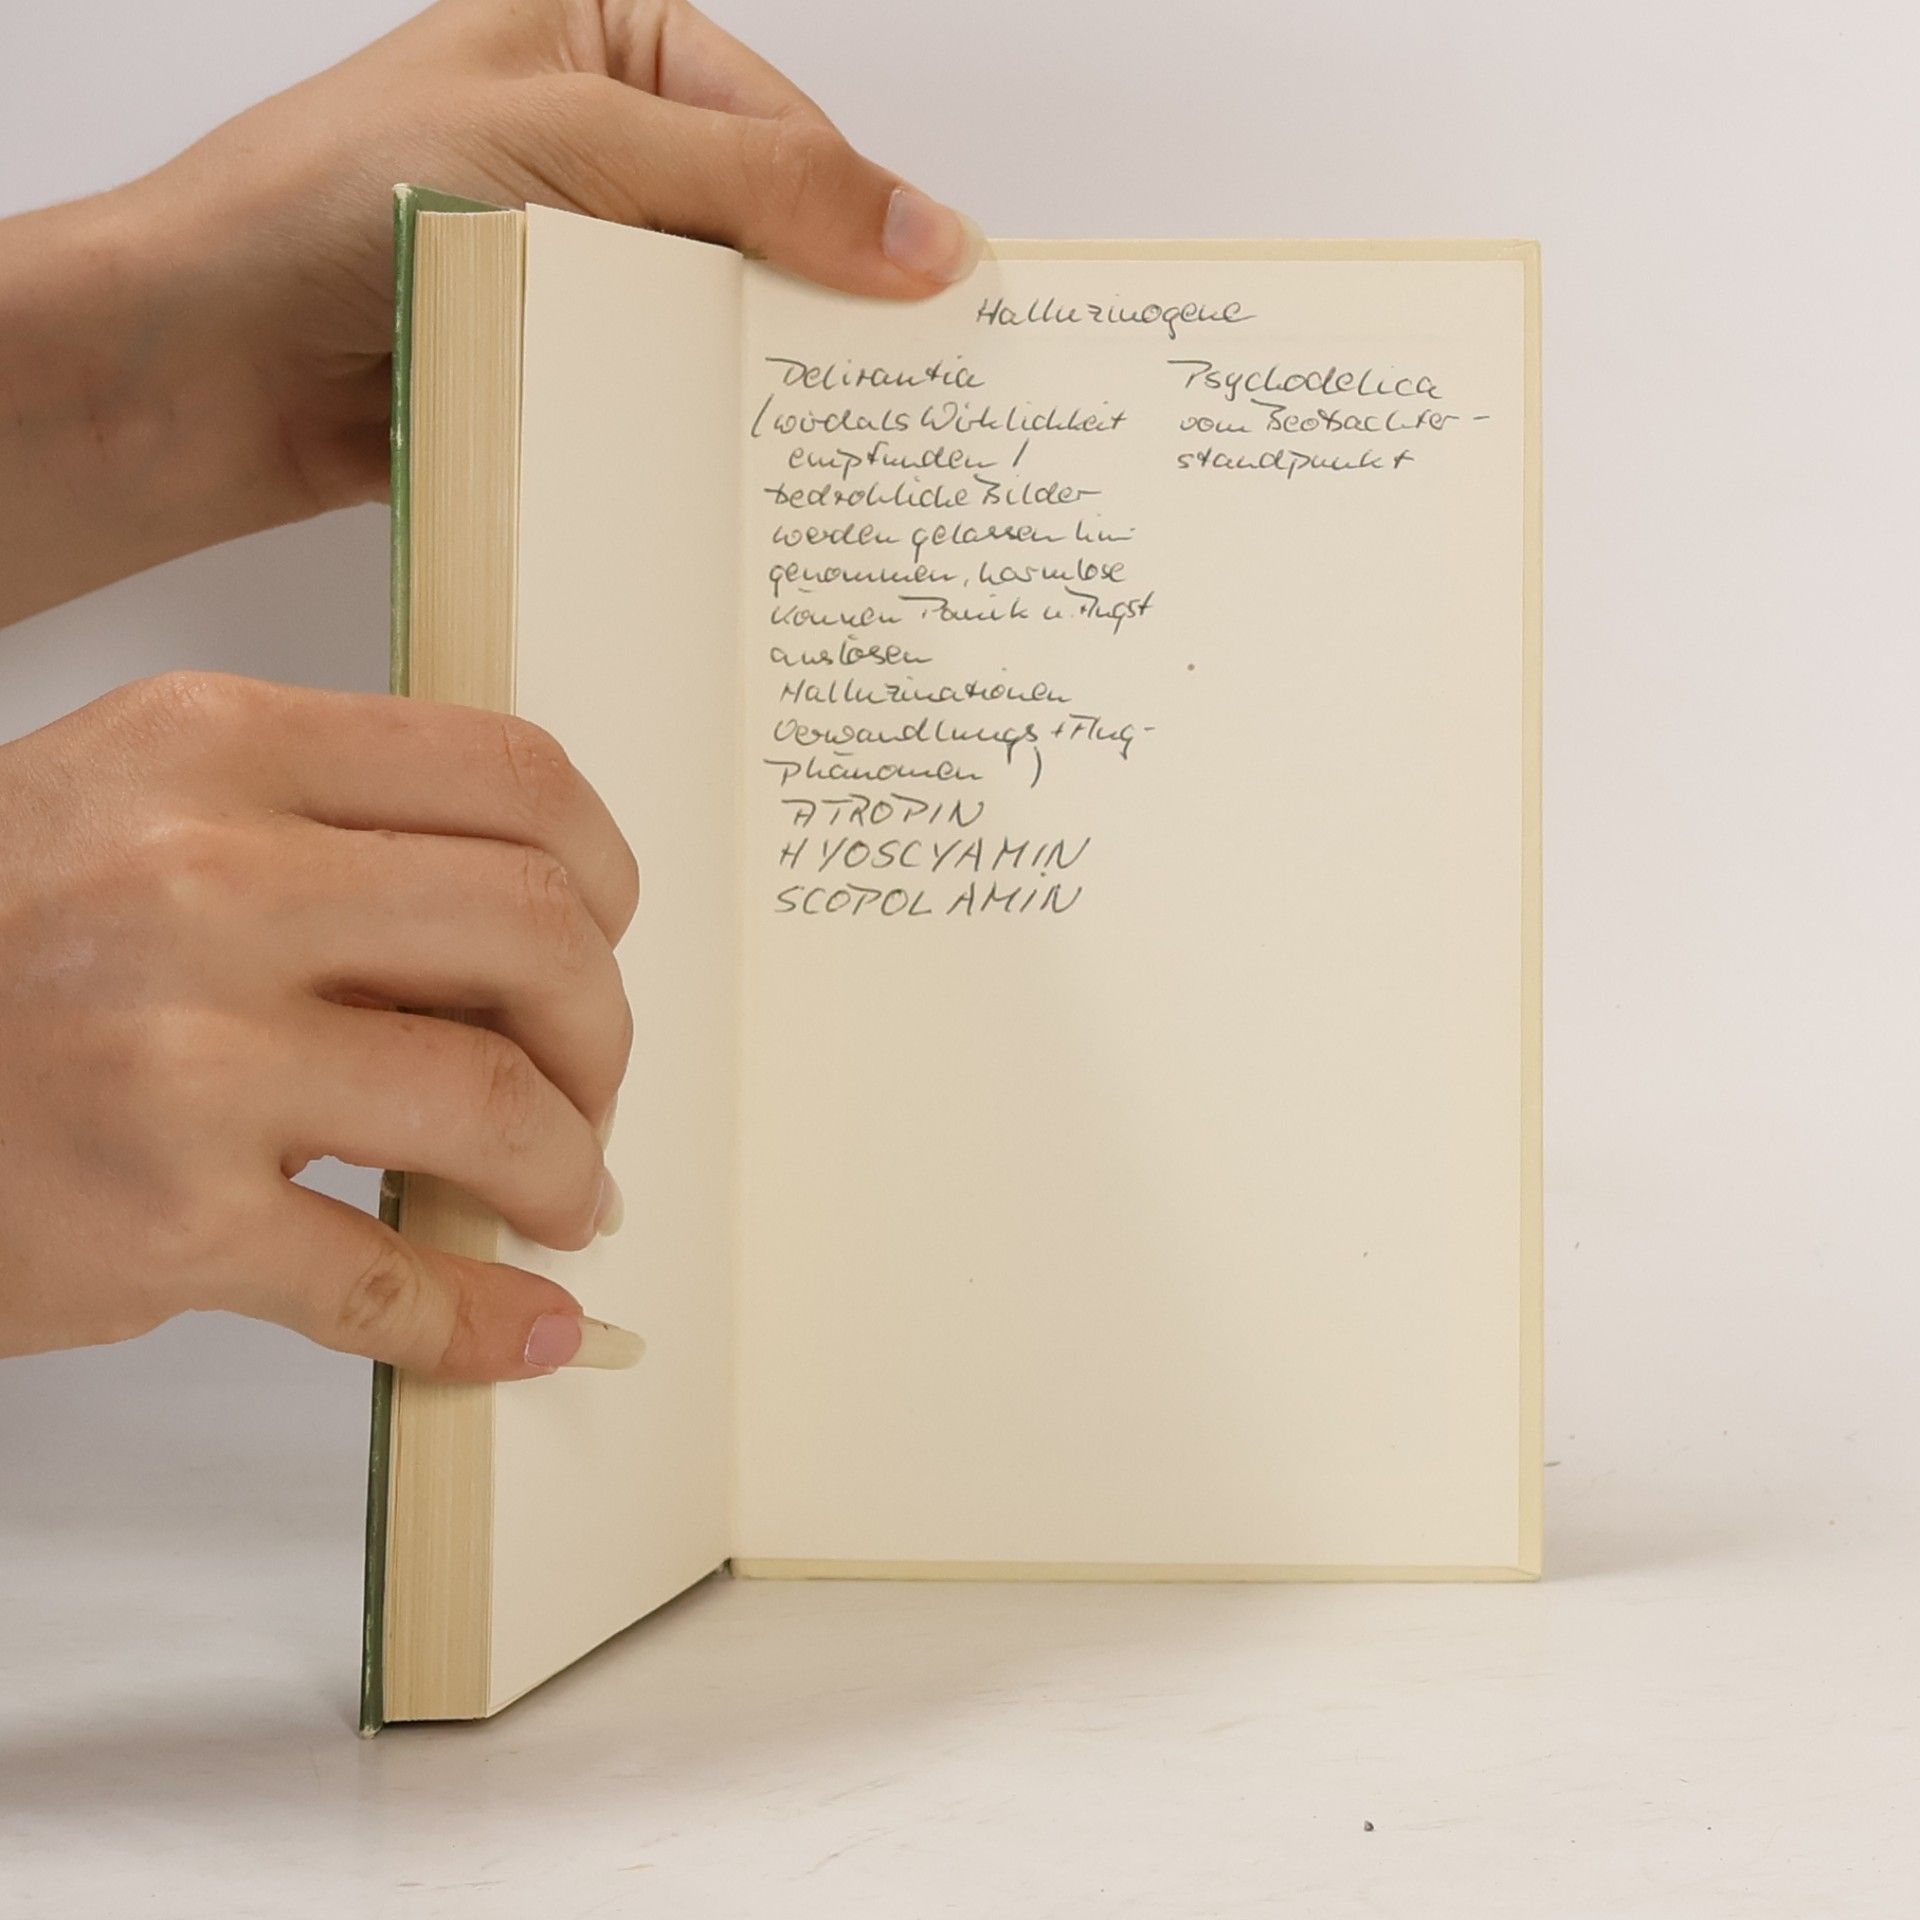 Halluzinogene
Delirantia
(wird als Wirklichkeit
empfunden /
bedrohliche Bilder
werden gelassen hin-
genommen, harmlose
können Panik u. Angst
auslösen
Halluzinationen
Verwandlungs + Flug-
phänomen )
ATROPIN
HYOSCYAMIN
SCOPOLAMIN
Psychodelica
vom Beobachter-
standpunkt